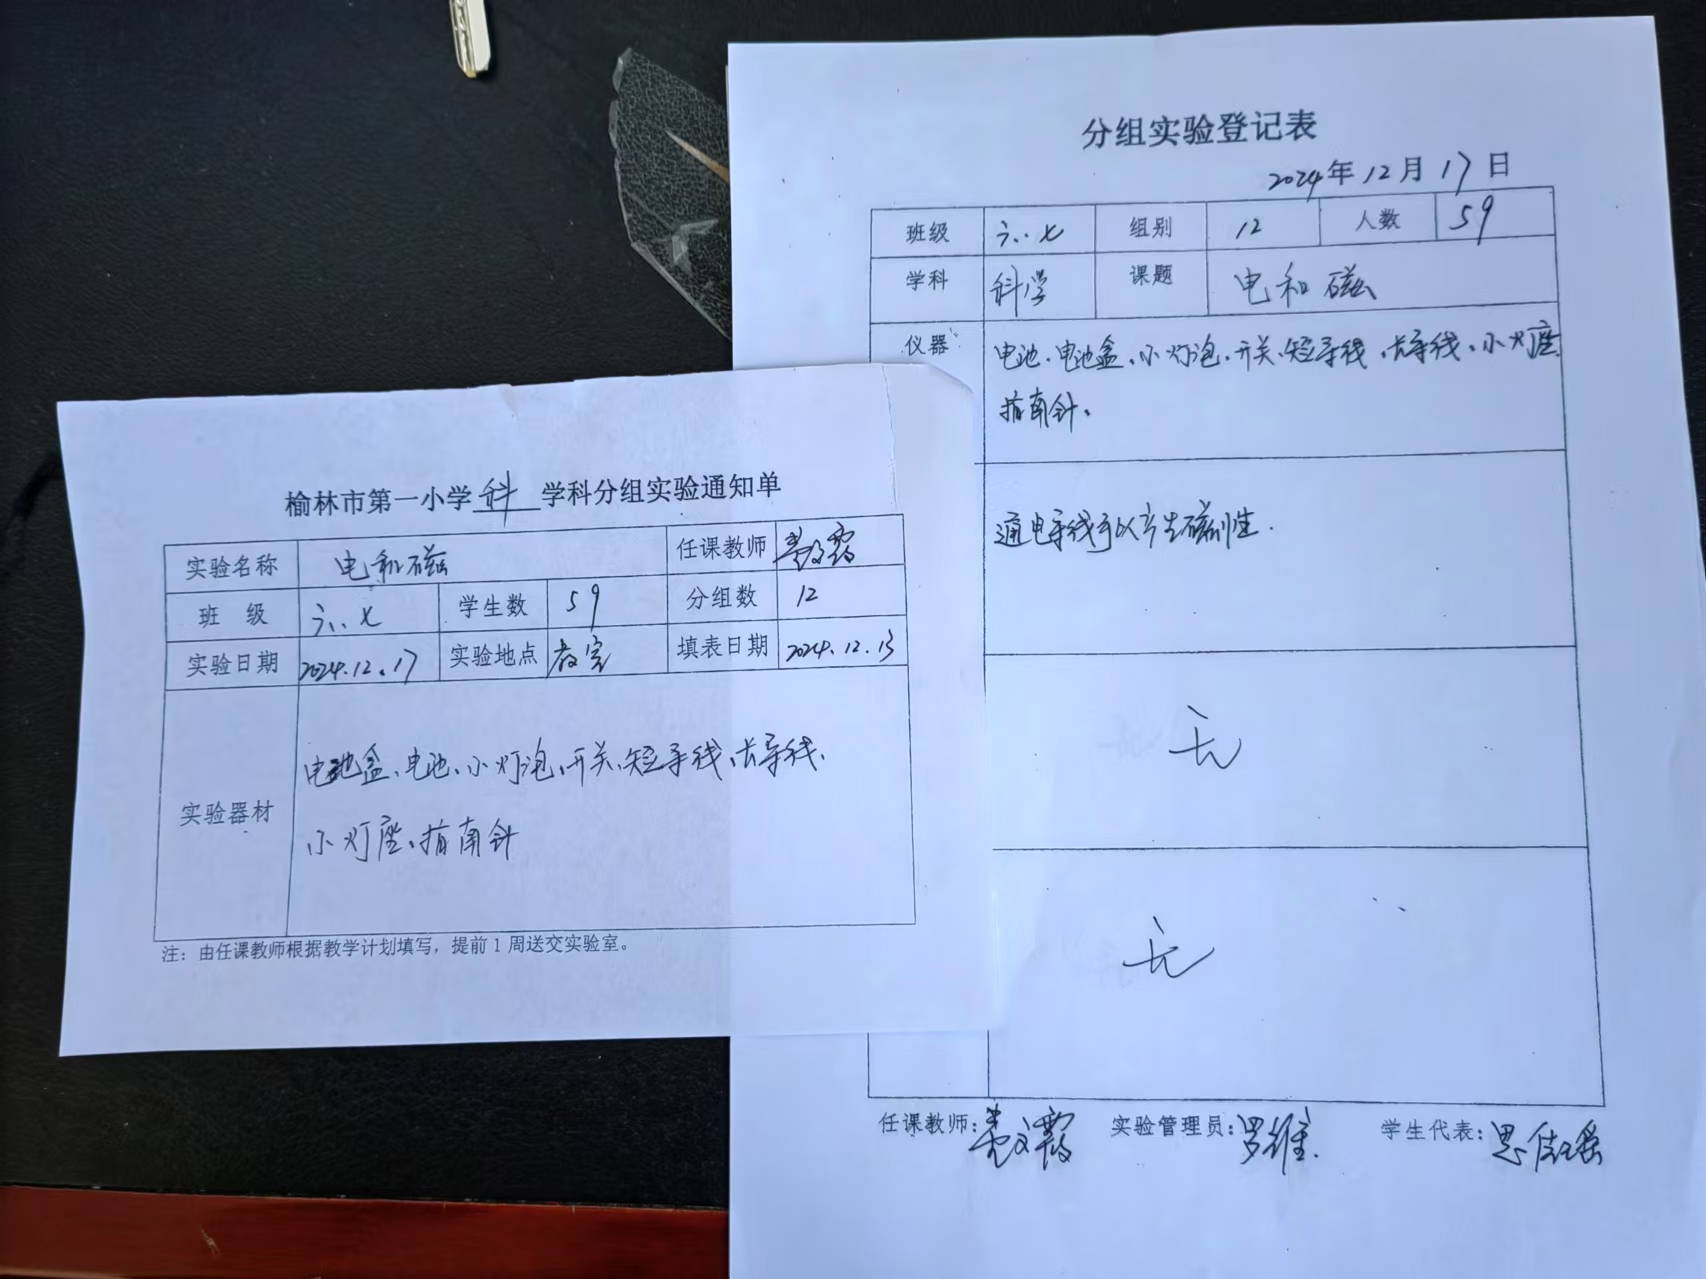 分组实验登记表
2024年12月17日
班级 六.七 组别 12 人数 59
学科 科学 课题 电和磁
仪器 电池、电池盒、小灯泡、开关、短导线、长导线、小灯座
指南针。
通电导线可以产生磁性.
无
无
任课教师: 实验管理员:罗维 学生代表:思佳瑶
榆林市第一小学科学科分组实验通知单
实验名称 电和磁 任课教师
班 级 六.七 学生数 59 分组数 12
实验日期 2024.12.17 实验地点 教室 填表日期 2024.12.13
实验器材 电池盒、电池、小灯泡、开关、短导线、长导线、
小灯座、指南针
注：由任课教师根据教学计划填写，提前1周送交实验室。